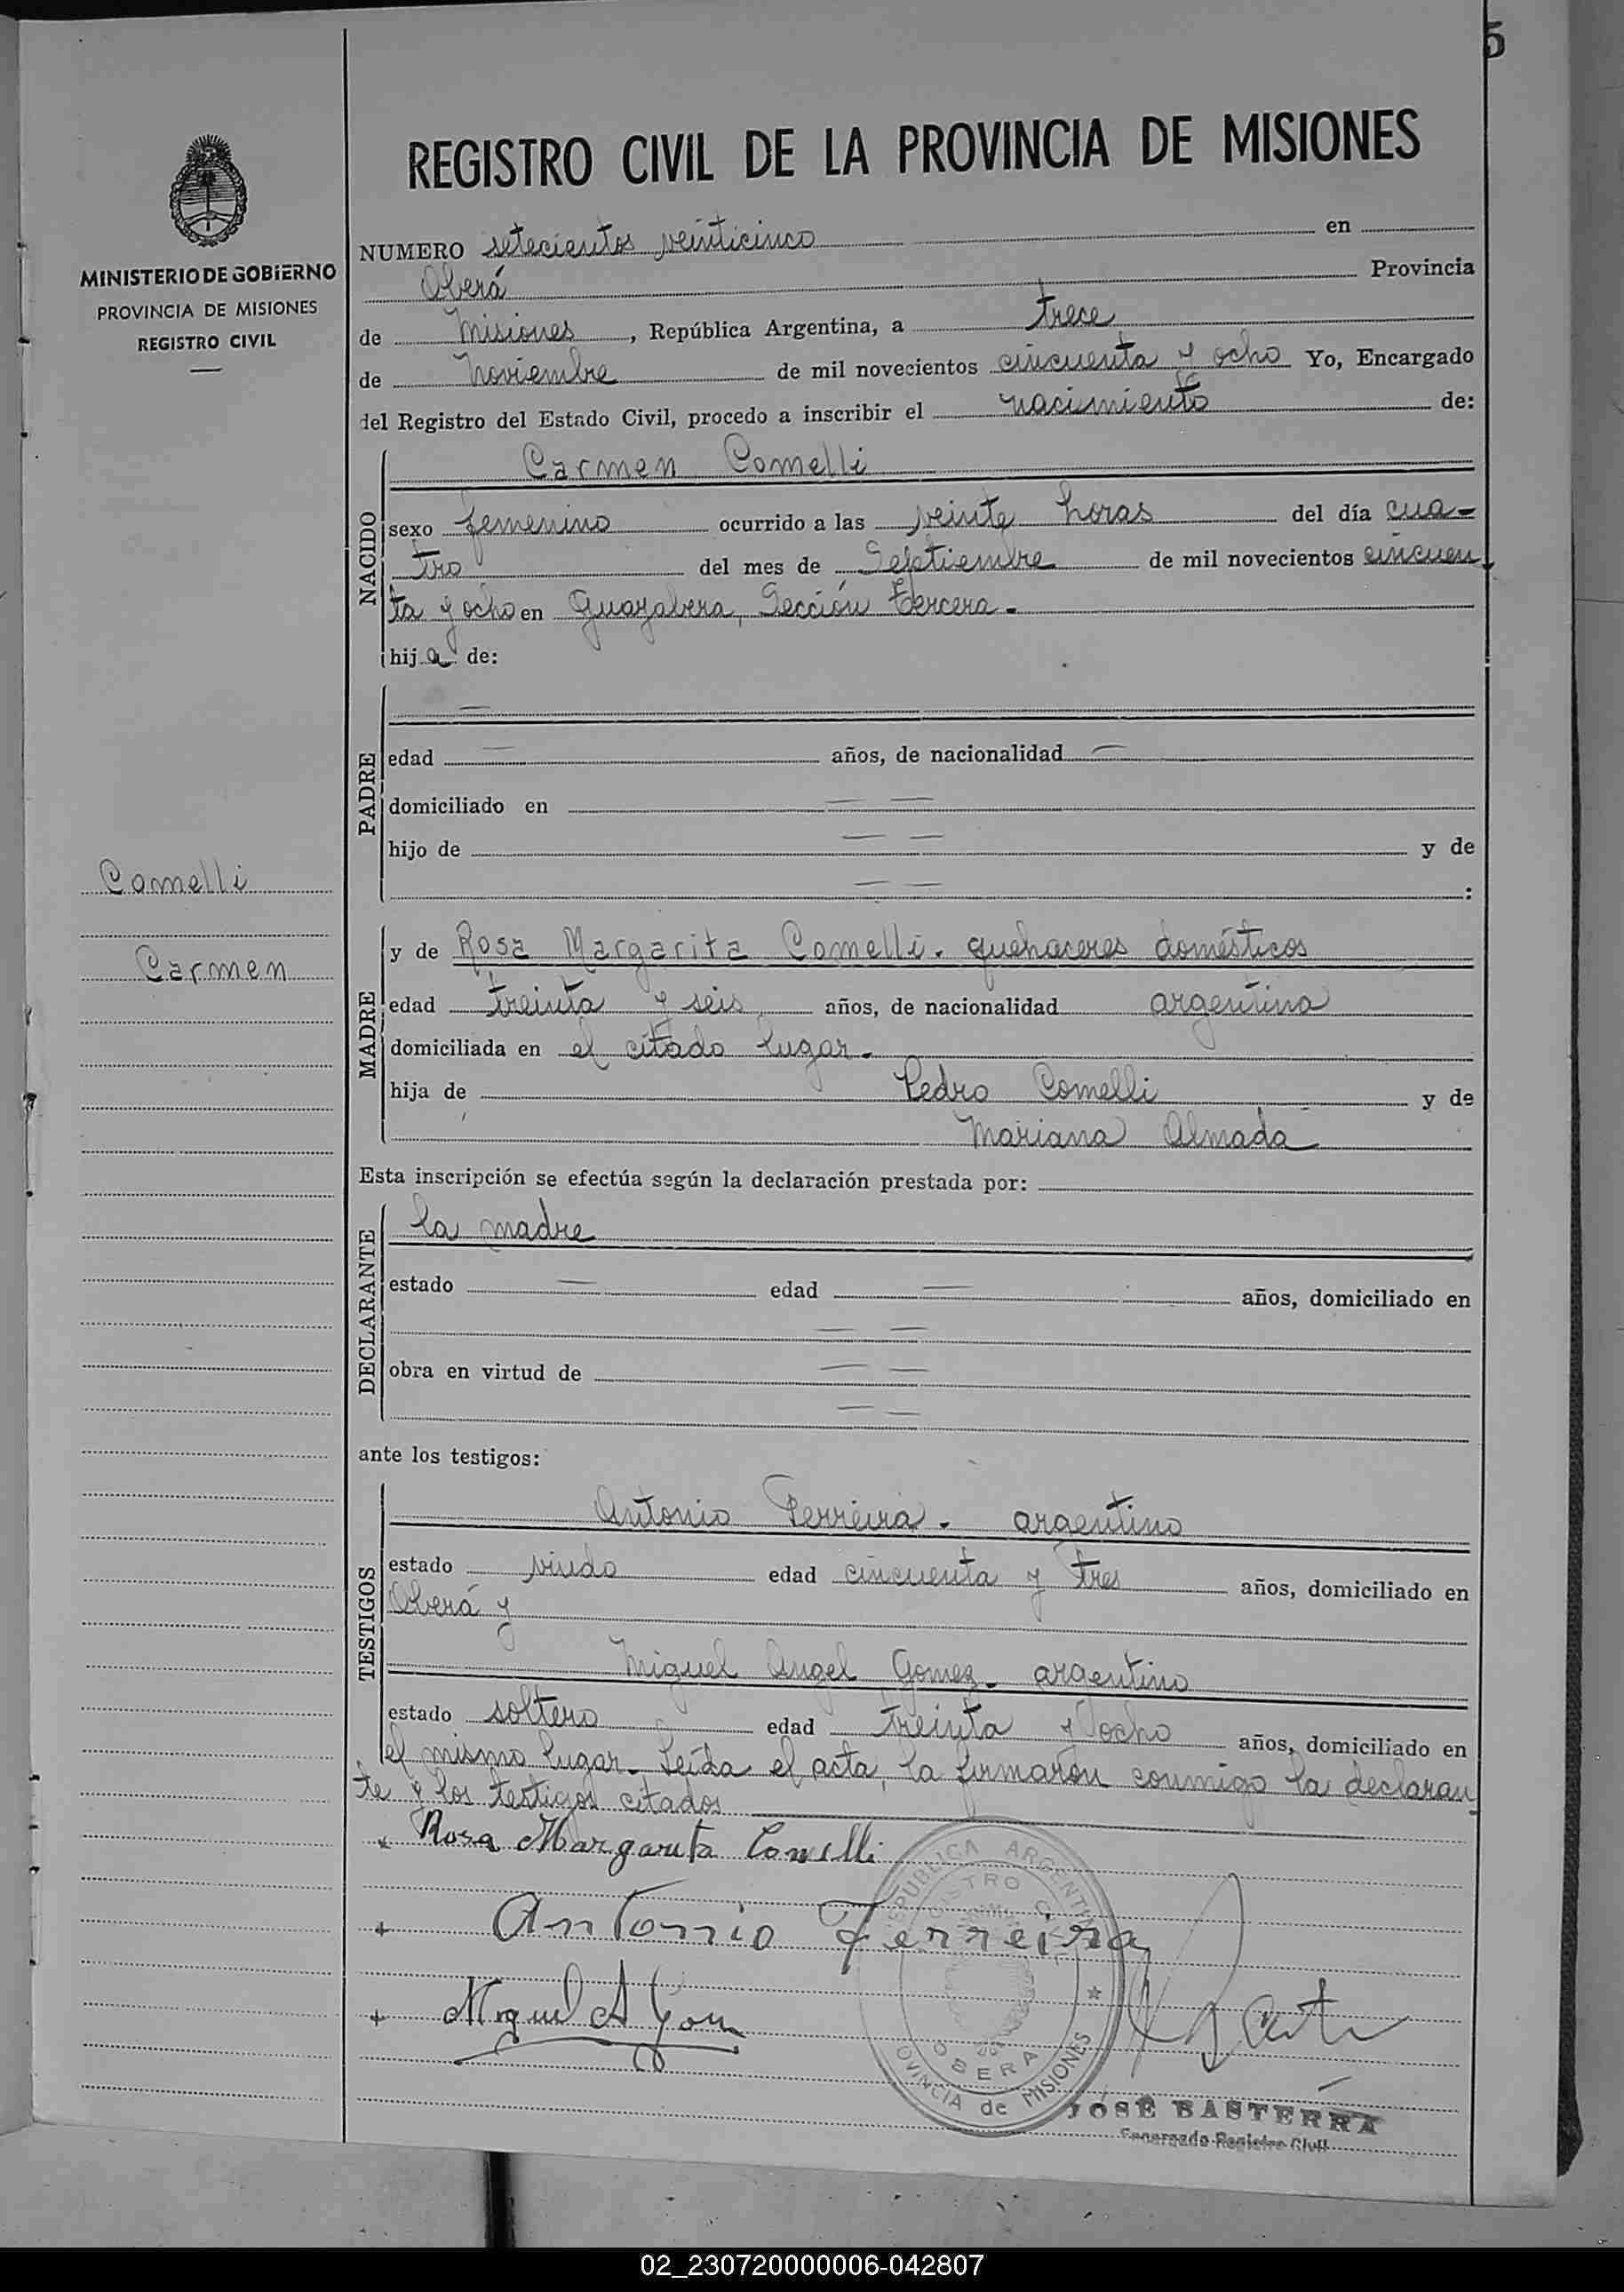 5
MINISTERIO DE GOBIERNO
PROVINCIA DE MISIONES
REGISTRO CIVIL
Comelli
Carmen
REGISTRO CIVIL DE LA PROVINCIA DE MISIONES
NUMERO setecientos veinticinco en
Oberá Provincia
de Misiones, República Argentina, a trece
de Noviembre de mil novecientos cincuenta y ocho Yo, Encargado
del Registro del Estado Civil, procedo a inscribir el nacimiento de:
NACIDO
Carmen Comelli
sexo femenino ocurrido a las veinte horas del día cua-
tro del mes de Septiembre de mil novecientos cincuen
ta y ocho en Guayabera, Sección Tercera.-
hija de:
PADRE
—
edad — años, de nacionalidad —
domiciliado en — —
hijo de — — y de
— — :
MADRE
y de Rosa Margarita Comelli. quehaceres domésticos
edad treinta y seis años, de nacionalidad argentina
domiciliada en el citado lugar.-
hija de Pedro Comelli y de
Mariana Almada
Esta inscripción se efectúa según la declaración prestada por:
DECLARANTE
la madre
estado — edad — años, domiciliado en
— —
obra en virtud de — —
— —
ante los testigos:
TESTIGOS
Antonio Ferreira. argentino
estado viudo edad cincuenta y tres años, domiciliado en
Oberá y
Miguel Angel Gomez. argentino
estado soltero edad treinta y ocho años, domiciliado en
el mismo lugar. Leída el acta, la firmaron conmigo la declaran
te y los testigos citados
Rosa Margarita Comelli
Antonio Ferreira
Miguel A Gom
REPUBLICA ARGENTINA
REGISTRO CIVIL
OBERA
PROVINCIA de MISIONES
JOSÉ BASTERRA
Encargado Registro Civil
02_230720000006-042807